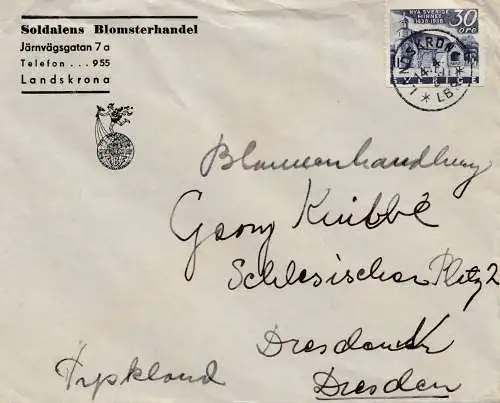 Soldalens Blomsterhandel
Järnvägsgatan 7 a
Telefon ... 955
Landskrona
NYA SVERIGE
MINNET
1638-1938
30
öre
LANDSKRONA
LBR
Blumenhandlung
Georg Knibbe
Schlesischer Platz 2
Dresden
Dresden
Tyskland